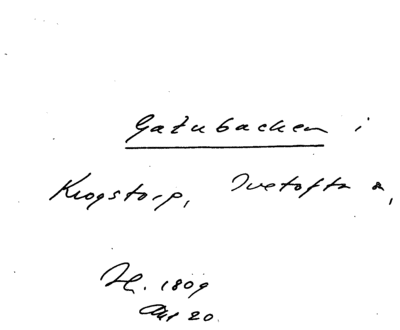 Gatubacken i
Krogstorp, Ivetofta s,
H. 1809
Akt 20.